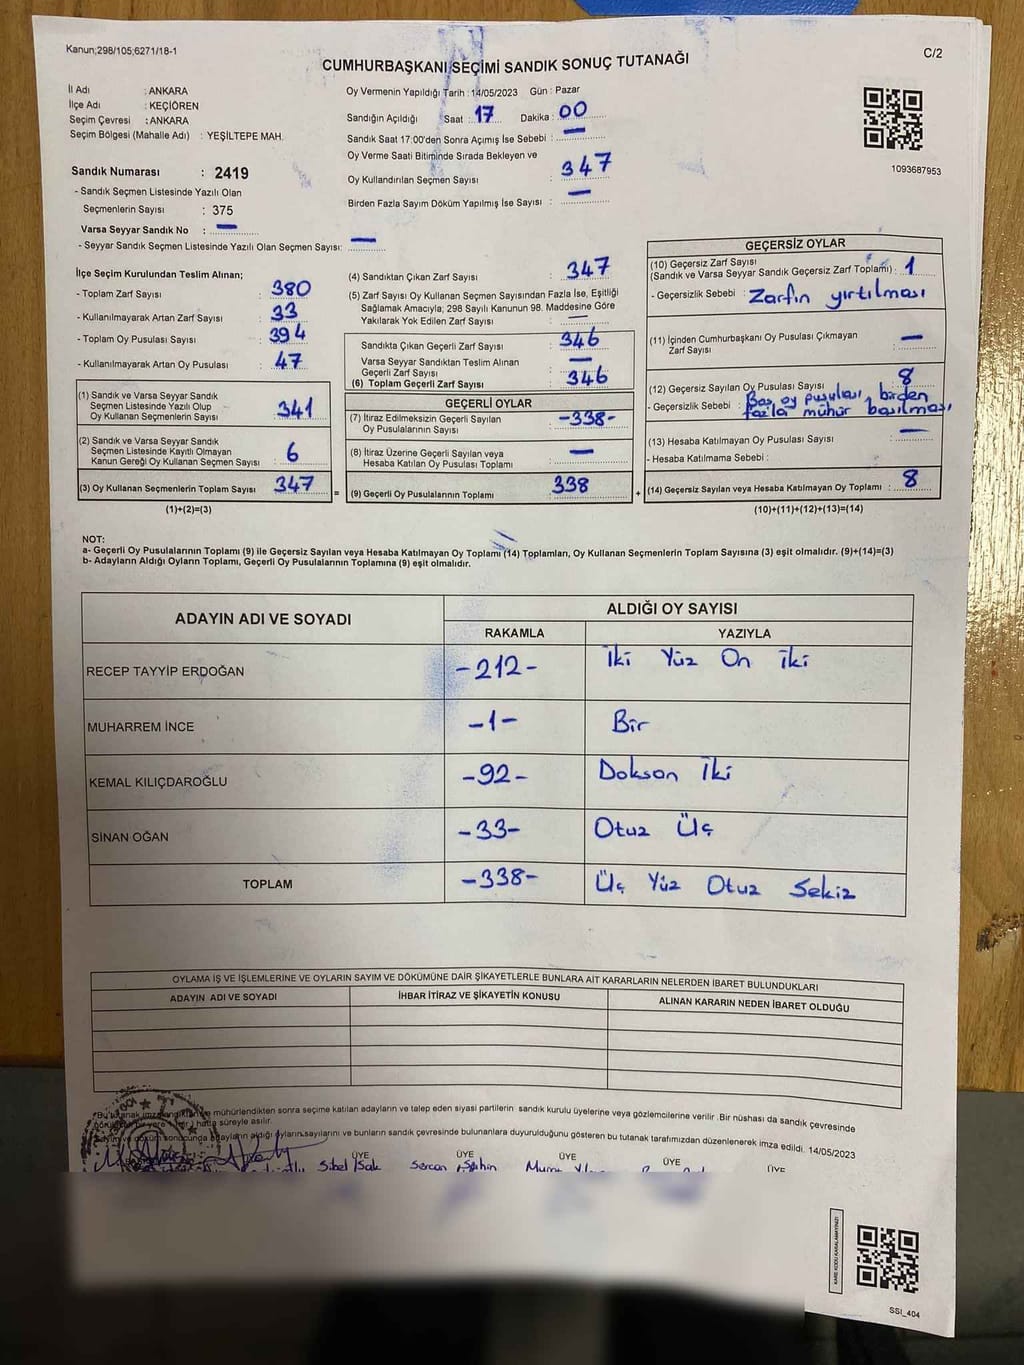 Kanun;298/105;6271/18-1
C/2
CUMHURBAŞKANI SEÇİMİ SANDIK SONUÇ TUTANAĞI
İl Adı : ANKARA
İlçe Adı : KEÇİÖREN
Seçim Çevresi : ANKARA
Seçim Bölgesi (Mahalle Adı) : YEŞİLTEPE MAH.
Sandık Numarası : 2419
- Sandık Seçmen Listesinde Yazılı Olan
Seçmenlerin Sayısı : 375
Varsa Seyyar Sandık No : —
- Seyyar Sandık Seçmen Listesinde Yazılı Olan Seçmen Sayısı: —
Oy Vermenin Yapıldığı Tarih : 14/05/2023 Gün : Pazar
Sandığın Açıldığı Saat : 17 Dakika : 00
Sandık Saat 17:00'den Sonra Açımış İse Sebebi : —
Oy Verme Saati Bitiminde Sırada Bekleyen ve
Oy Kullandırılan Seçmen Sayısı : 347
Birden Fazla Sayım Döküm Yapılmış İse Sayısı : —
1093687953
İlçe Seçim Kurulundan Teslim Alınan;
- Toplam Zarf Sayısı : 380
- Kullanılmayarak Artan Zarf Sayısı : 33
- Toplam Oy Pusulası Sayısı : 394
- Kullanılmayarak Artan Oy Pusulası : 47
(1) Sandık ve Varsa Seyyar Sandık
Seçmen Listesinde Yazılı Olup
Oy Kullanan Seçmenlerin Sayısı : 341
(2) Sandık ve Varsa Seyyar Sandık
Seçmen Listesinde Kayıtlı Olmayan
Kanun Gereği Oy Kullanan Seçmen Sayısı : 6
(3) Oy Kullanan Seçmenlerin Toplam Sayısı : 347
(1)+(2)=(3)
(4) Sandıktan Çıkan Zarf Sayısı : 347
(5) Zarf Sayısı Oy Kullanan Seçmen Sayısından Fazla İse, Eşitliği
Sağlamak Amacıyla; 298 Sayılı Kanunun 98. Maddesine Göre
Yakılarak Yok Edilen Zarf Sayısı : —
Sandıkta Çıkan Geçerli Zarf Sayısı : 346
Varsa Seyyar Sandıktan Teslim Alınan
Geçerli Zarf Sayısı : —
(6) Toplam Geçerli Zarf Sayısı : 346
GEÇERLİ OYLAR
(7) İtiraz Edilmeksizin Geçerli Sayılan
Oy Pusulalarının Sayısı : -338-
(8) İtiraz Üzerine Geçerli Sayılan veya
Hesaba Katılan Oy Pusulası Toplamı : —
= (9) Geçerli Oy Pusulalarının Toplamı : 338
GEÇERSİZ OYLAR
(10) Geçersiz Zarf Sayısı
(Sandık ve Varsa Seyyar Sandık Geçersiz Zarf Toplamı) : 1
- Geçersizlik Sebebi : Zarfın yırtılması
(11) İçinden Cumhurbaşkanı Oy Pusulası Çıkmayan
Zarf Sayısı : —
(12) Geçersiz Sayılan Oy Pusulası Sayısı : 8
- Geçersizlik Sebebi : Boş oy pusulası, birden
fazla mühür basılması
(13) Hesaba Katılmayan Oy Pusulası Sayısı : —
- Hesaba Katılmama Sebebi :
+ (14) Geçersiz Sayılan veya Hesaba Katılmayan Oy Toplamı : 8
(10)+(11)+(12)+(13)=(14)
NOT:
a- Geçerli Oy Pusulalarının Toplamı (9) ile Geçersiz Sayılan veya Hesaba Katılmayan Oy Toplamı (14) Toplamları, Oy Kullanan Seçmenlerin Toplam Sayısına (3) eşit olmalıdır. (9)+(14)=(3)
b- Adayların Aldığı Oyların Toplamı, Geçerli Oy Pusulalarının Toplamına (9) eşit olmalıdır.
ADAYIN ADI VE SOYADI
ALDIĞI OY SAYISI
RAKAMLA YAZIYLA
RECEP TAYYİP ERDOĞAN -212- İki Yüz On İki
MUHARREM İNCE -1- Bir
KEMAL KILIÇDAROĞLU -92- Doksan İki
SİNAN OĞAN -33- Otuz Üç
TOPLAM -338- Üç Yüz Otuz Sekiz
OYLAMA İŞ VE İŞLEMLERİNE VE OYLARIN SAYIM VE DÖKÜMÜNE DAİR ŞİKAYETLERLE BUNLARA AİT KARARLARIN NELERDEN İBARET BULUNDUKLARI
ADAYIN ADI VE SOYADI İHBAR İTİRAZ VE ŞİKAYETİN KONUSU ALINAN KARARIN NEDEN İBARET OLDUĞU
mühürlendikten sonra seçime katılan adayların ve talep eden siyasi partilerin sandık kurulu üyelerine veya gözlemcilerine verilir .Bir nüshası da sandık çevresinde
süreyle asılır.
adayların aldığı oyların sayılarını ve bunların sandık çevresinde bulunanlara duyurulduğunu gösteren bu tutanak tarafımızdan düzenlenerek imza edildi. 14/05/2023
ÜYE ÜYE ÜYE ÜYE ÜYE
Sibel Işak Sercan Şahin
KARE KODU KARALAMAYINIZ!
SSI_404